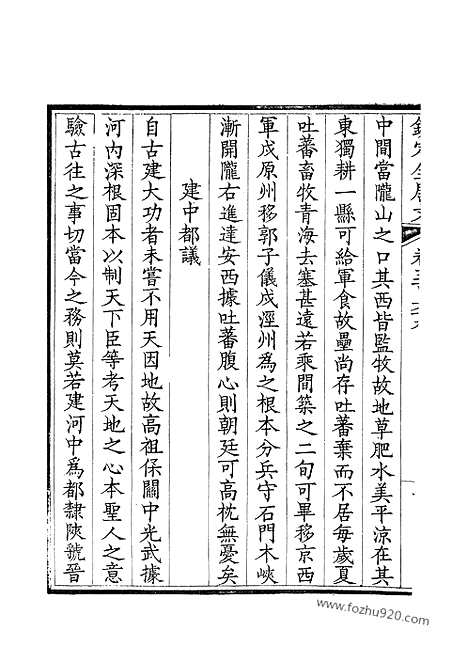 中間當隴山之口其西皆監牧故地草肥水美平涼在其
東獨耕一縣可給軍食故壘尚存吐蕃棄而不居每歲夏
吐蕃畜牧青海去塞甚遠若乘間築之二旬可畢移京西
軍戍原州移郭子儀戍涇州為之根本分兵守石門木峽
漸開隴右進達安西據吐蕃腹心則朝廷可高枕無憂矣
建中都議
自古建大功者未嘗不用天因地故高祖保關中光武據
河內深根固本以制天下臣等考天地之心本聖人之意
驗古往之事切當今之務則莫若建河中為都隸陝虢晉
www.fozhu920.com